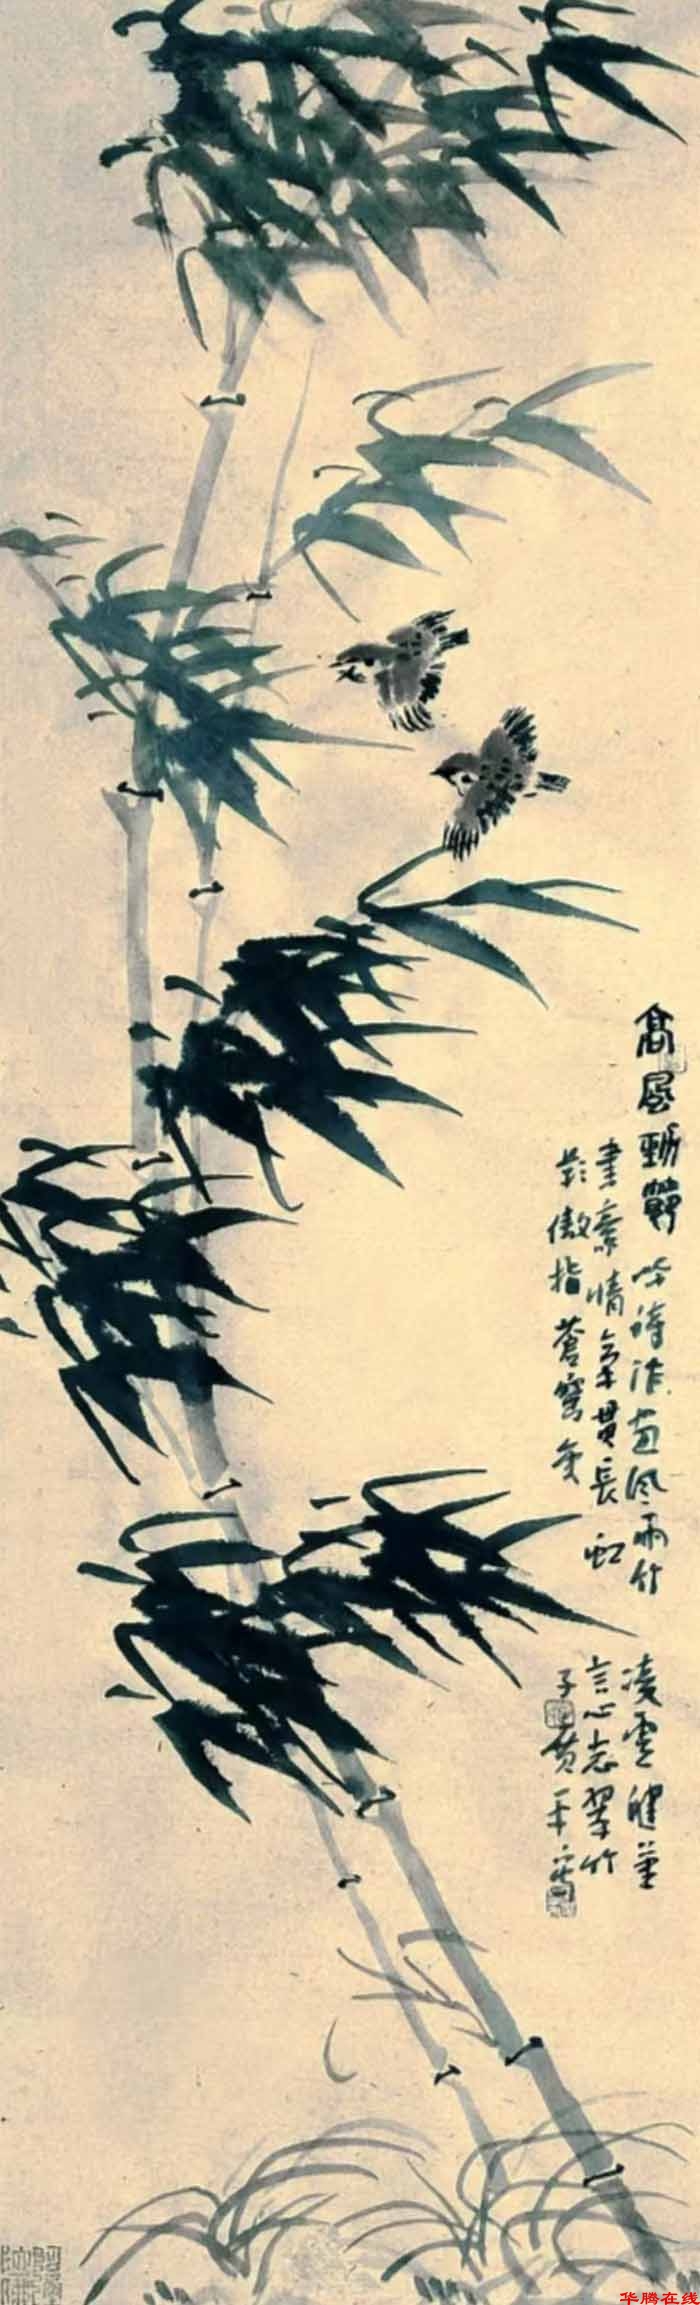 高風勁節 吟詩作畫風雨竹 凌雲健筆
書豪情氣貫長虹 言心志翠竹
影傲指蒼穹 子 黄
华腾在线